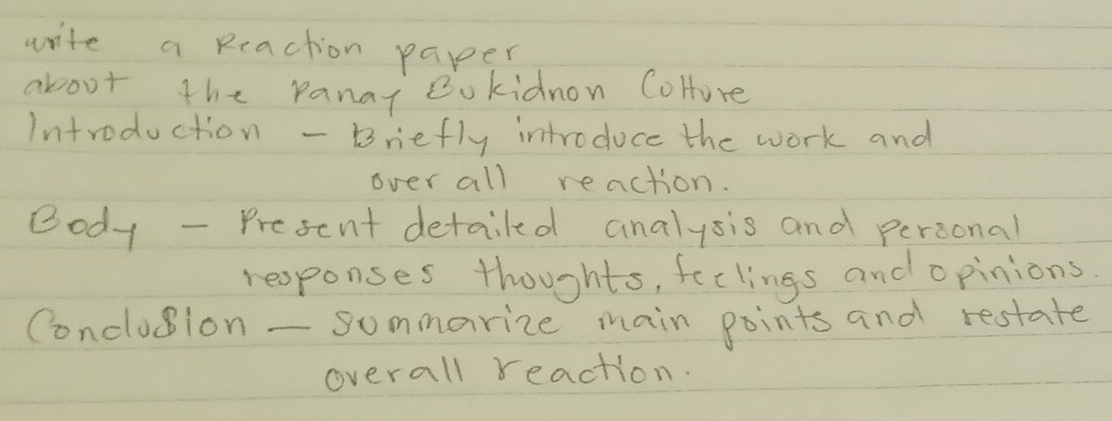 write a Reaction paper
about the Panay Bukidnon Colture
Introduction - Briefly introduce the work and
over all reaction.
Body - Present detailed analysis and personal
responses thoughts, feelings and opinions.
Conclusion - summarize main points and restate
overall reaction.